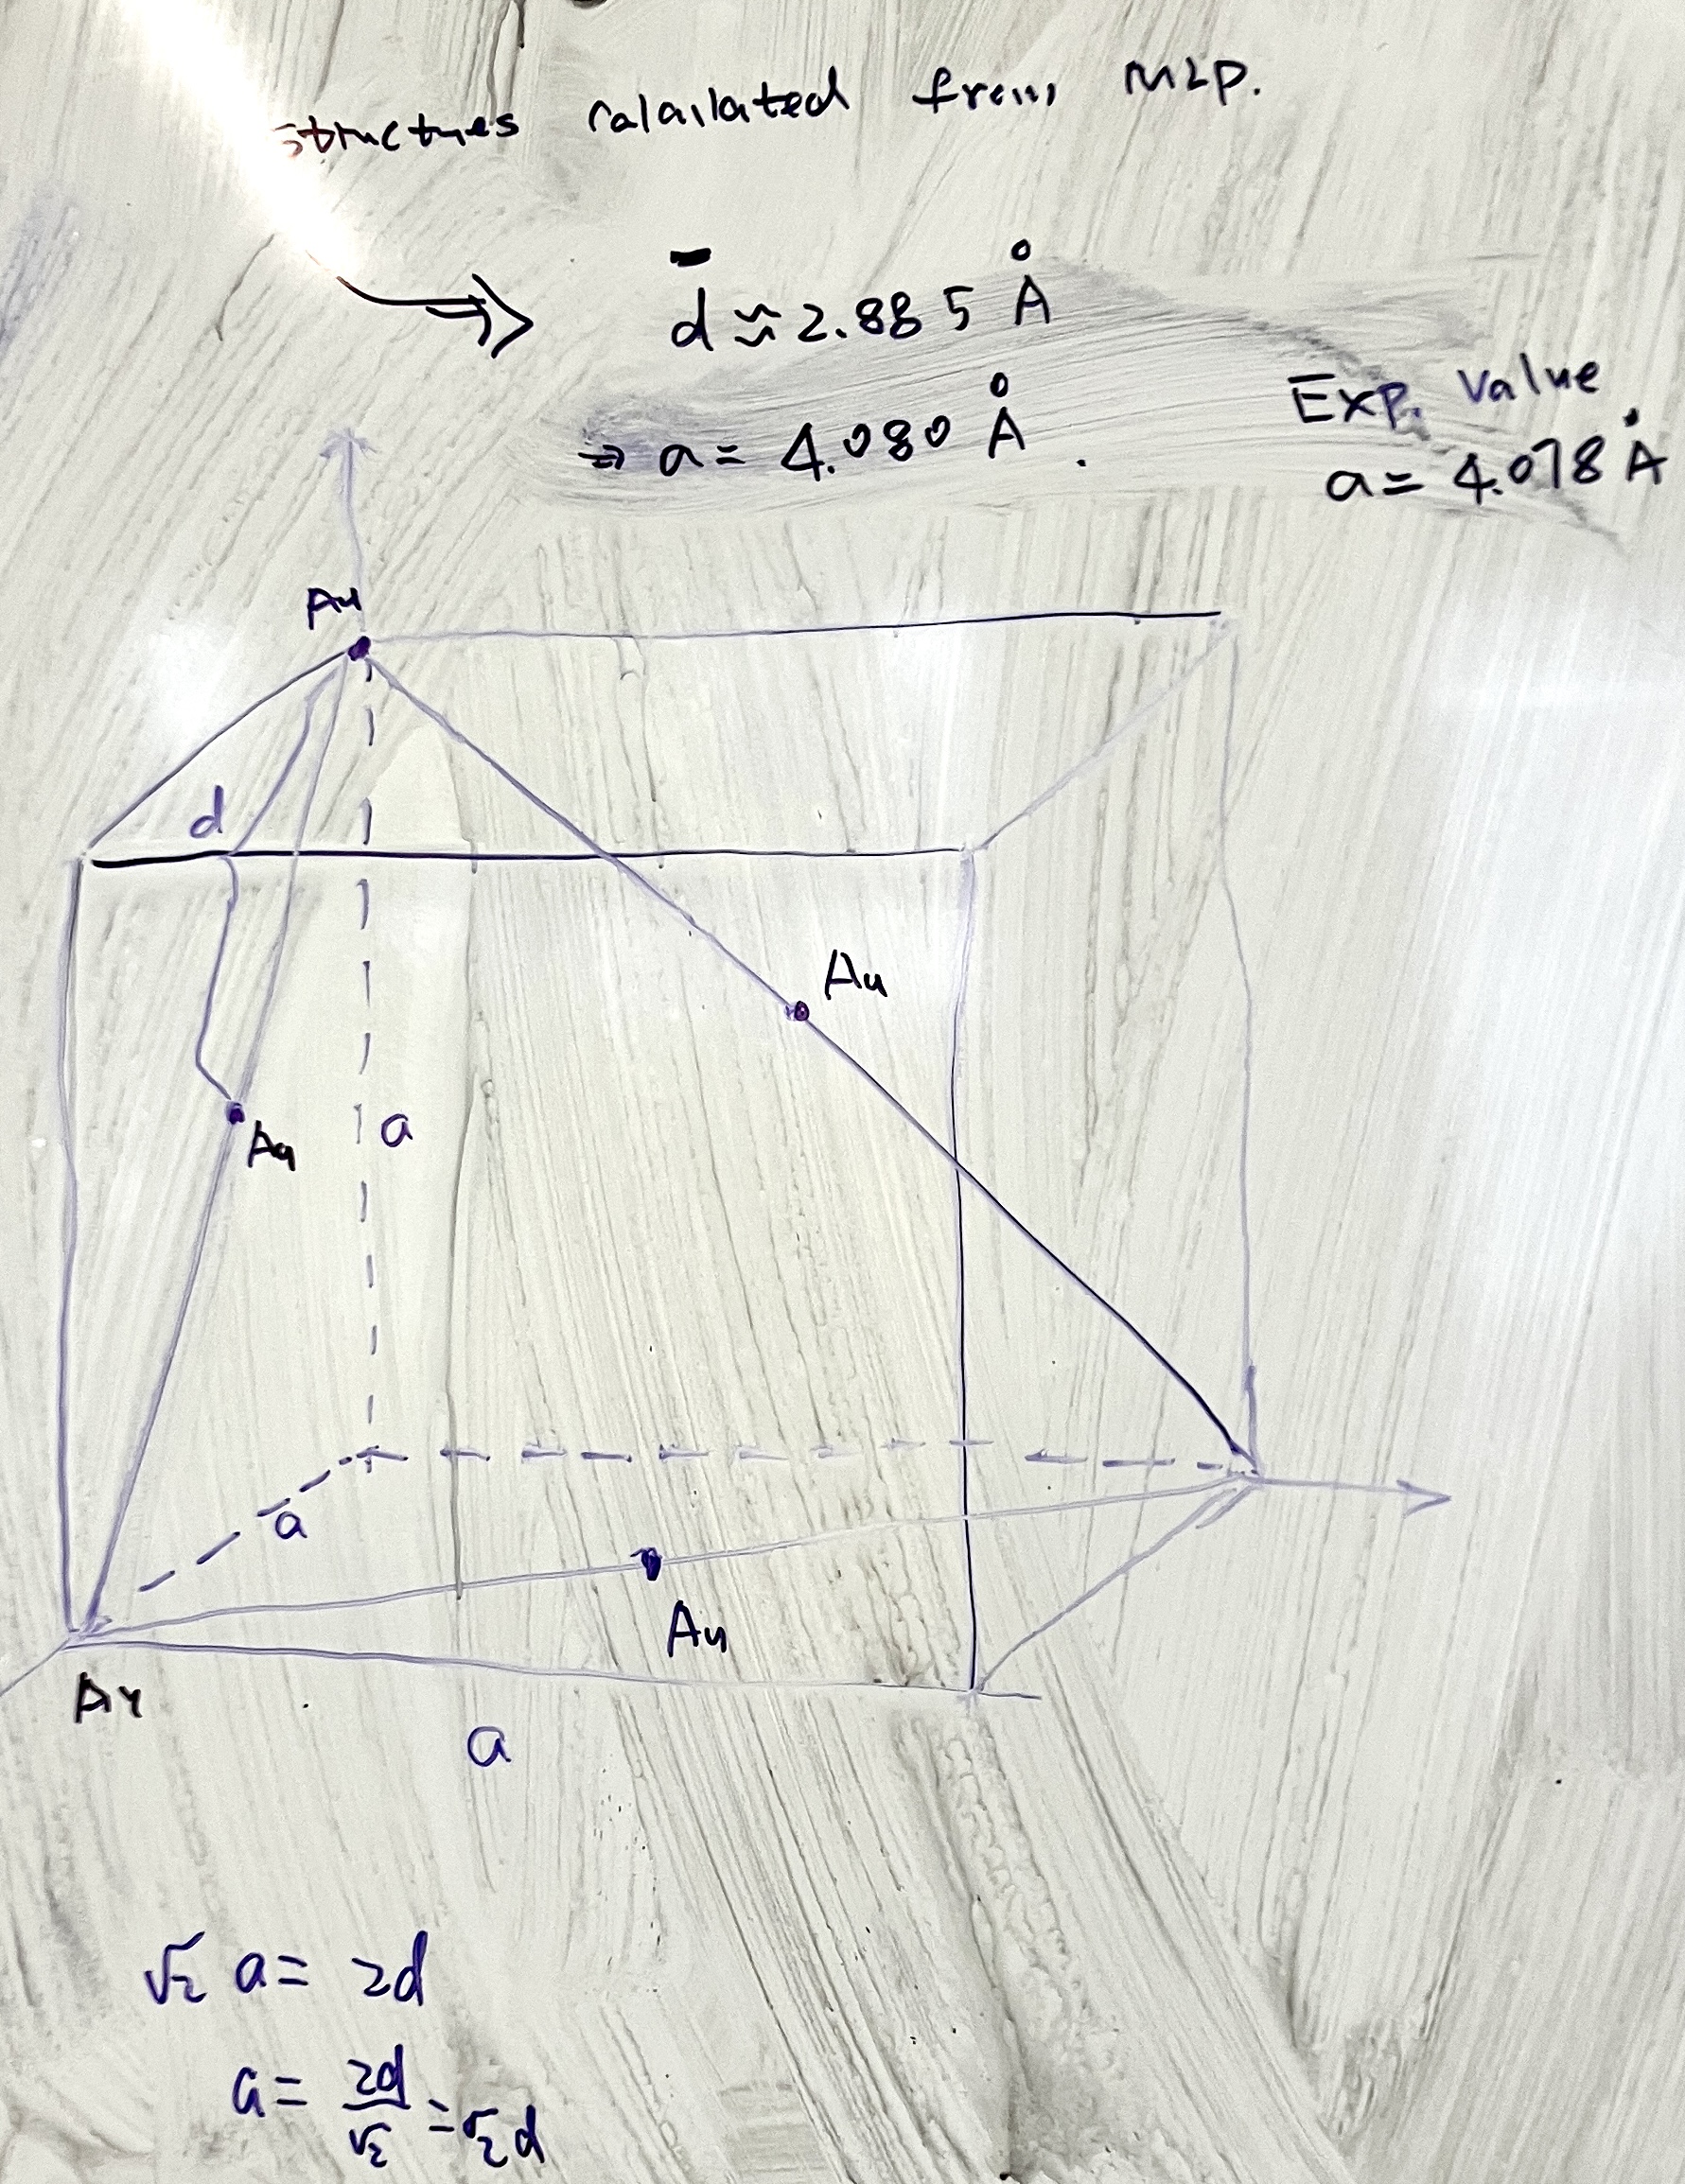 structures calculated from MLP.
d̄ ≈ 2.885 Å
⇒ a = 4.080 Å.
Exp. Value
a = 4.078 Å
Au
d
Au
Au
a
a
Au
Au
a
√2 a = 2d
a = 2d/√2 = √2 d